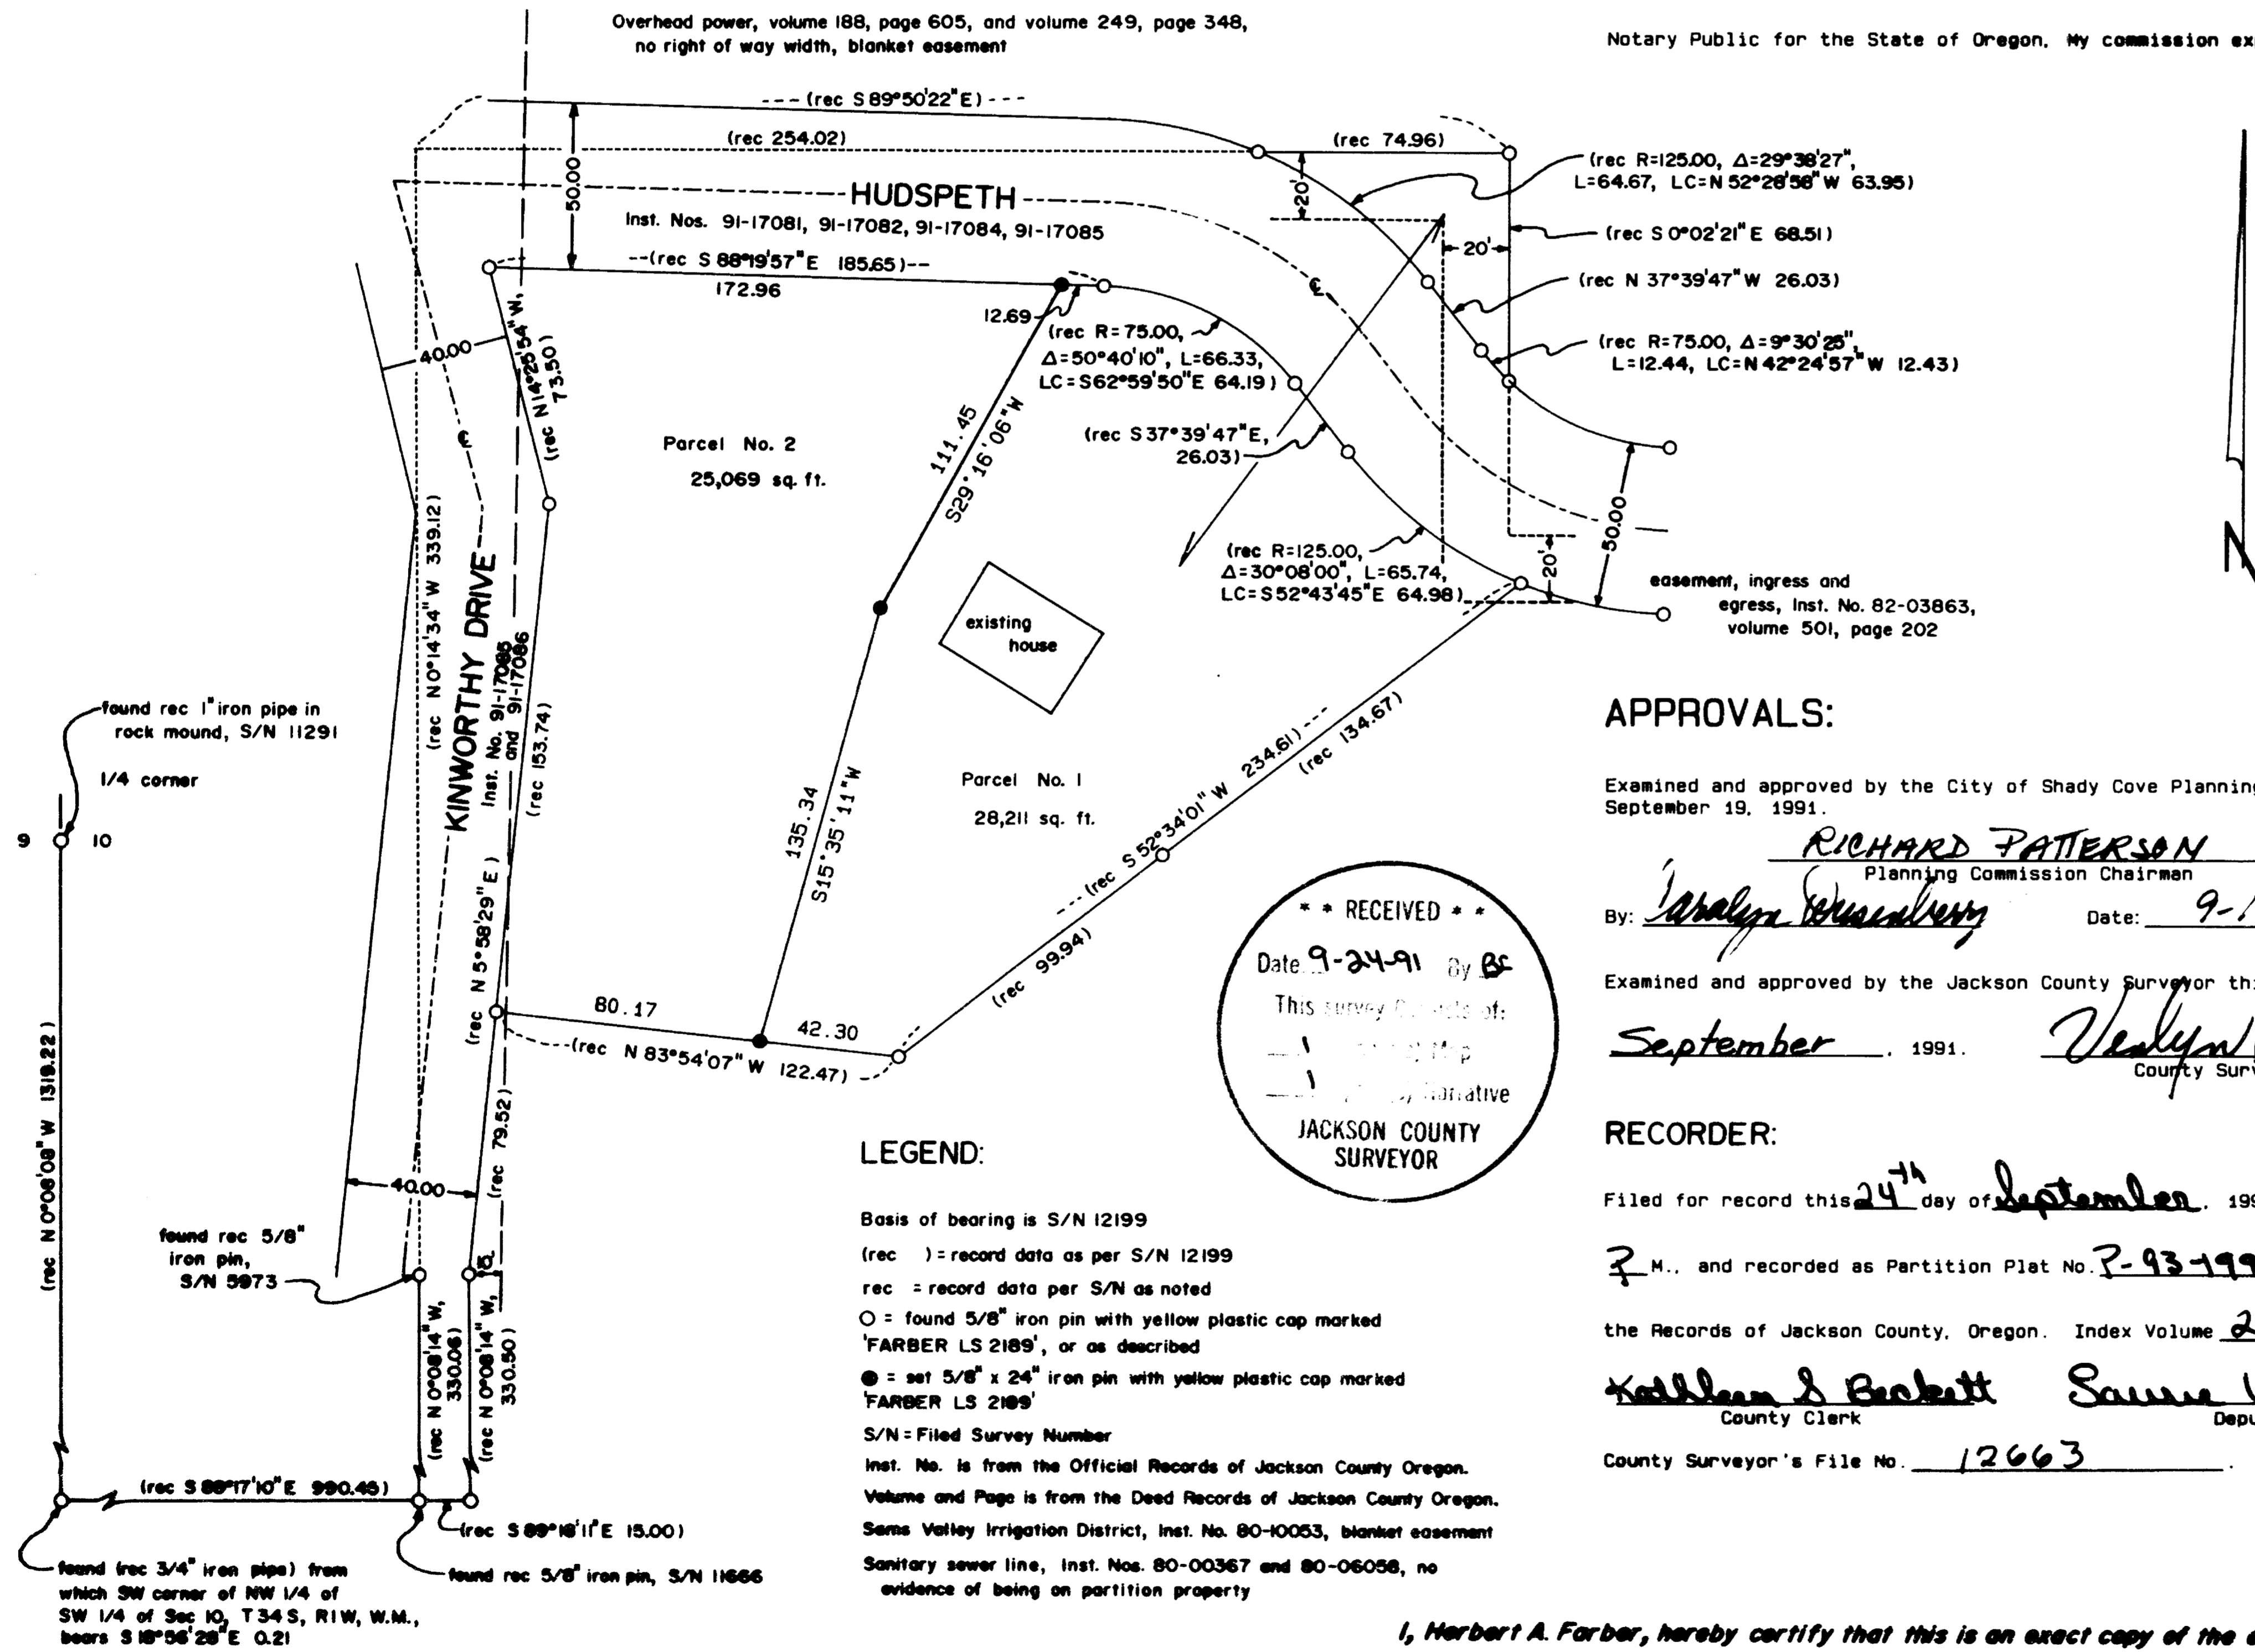 Overhead power, volume 188, page 605, and volume 249, page 348,
no right of way width, blanket easement
Notary Public for the State of Oregon. My commission ex
--- (rec S 89°50'22"E) ---
(rec 254.02)
(rec 74.96)
50.00
20'
HUDSPETH
Inst. Nos. 91-17081, 91-17082, 91-17084, 91-17085
(rec R=125.00, Δ=29°38'27",
L=64.67, LC=N 52°28'58"W 63.95)
(rec S 0°02'21"E 68.51)
20'
--(rec S 88°19'57"E 185.65)--
172.96
12.69
(rec N 37°39'47"W 26.03)
℄
(rec R=75.00,
Δ=50°40'10", L=66.33,
LC=S62°59'50"E 64.19)
(rec R=75.00, Δ=9°30'25",
L=12.44, LC=N 42°24'57"W 12.43)
40.00
(rec N14°25'54"W,
73.50)
℄
Parcel No. 2
25,069 sq. ft.
111.45
S29°16'06"W
(rec S37°39'47"E,
26.03)
50.00
(rec R=125.00,
Δ=30°08'00", L=65.74,
LC=S52°43'45"E 64.98)
20'
easement, ingress and
egress, Inst. No. 82-03863,
volume 501, page 202
N
(rec N0°14'34"W 339.12)
KINWORTHY DRIVE
Inst. No. 91-17085
and 91-17086
(rec 153.74)
existing
house
found rec 1" iron pipe in
rock mound, S/N 11291
1/4 corner
9
10
Parcel No. 1
28,211 sq. ft.
135.34
S15°35'11"W
---(rec S 52°34'01"W 234.61)---
(rec 134.67)
(rec 99.94)
(rec N 5°58'29"E)
80.17
42.30
---(rec N 83°54'07"W 122.47)
(rec 79.52)
40.00
(rec N 0°08'08"W 1319.22)
found rec 5/8"
iron pin,
S/N 5973
(rec N 0°08'14"W,
330.06)
(rec N 0°08'14"W,
330.50)
(rec S 88°17'10"E 990.45)
(rec S 89°18'11"E 15.00)
found rec 5/8" iron pin, S/N 11666
found (rec 3/4" iron pipe) from
which SW corner of NW 1/4 of
SW 1/4 of Sec 10, T34S, R1W, W.M.,
bears S 18°56'28"E 0.21
* * RECEIVED * *
Date 9-24-91 By BC
This survey consists of:
1 Map
1 Narrative
JACKSON COUNTY
SURVEYOR
LEGEND:
Basis of bearing is S/N 12199
(rec ) = record data as per S/N 12199
rec = record data per S/N as noted
O = found 5/8" iron pin with yellow plastic cap marked
'FARBER LS 2189', or as described
● = set 5/8" x 24" iron pin with yellow plastic cap marked
'FARBER LS 2189'
S/N = Filed Survey Number
Inst. No. is from the Official Records of Jackson County Oregon.
Volume and Page is from the Deed Records of Jackson County Oregon.
Sams Valley Irrigation District, Inst. No. 80-10053, blanket easement
Sanitary sewer line, Inst. Nos. 80-00367 and 80-06058, no
evidence of being on partition property
APPROVALS:
Examined and approved by the City of Shady Cove Planning
September 19, 1991.
RICHARD PATTERSON
Planning Commission Chairman
By: Date: 9-1
Examined and approved by the Jackson County Surveyor thi
September, 1991.
County Surv
RECORDER:
Filed for record this 24th day of September, 199
P M., and recorded as Partition Plat No. P-93-199
the Records of Jackson County, Oregon. Index Volume 2
Kathleen S Beckett
County Clerk Depu
County Surveyor's File No. 12663.
I, Herbert A. Farber, hereby certify that this is an exact copy of the